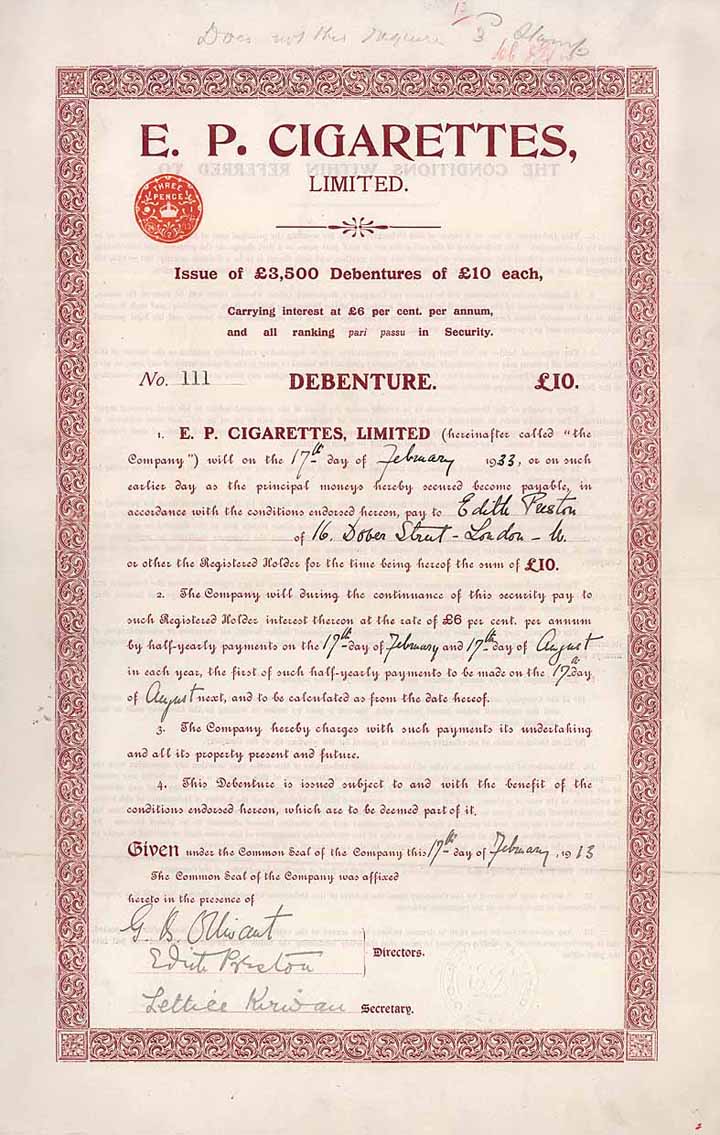 Does not this require 3 Stamp
E. P. CIGARETTES,
LIMITED.
THREE
PENCE
Issue of £3,500 Debentures of £10 each,
Carrying interest at £6 per cent. per annum,
and all ranking pari passu in Security.
No. 111 DEBENTURE. £10.
1. E. P. CIGARETTES, LIMITED (hereinafter called "the
Company") will on the 17th day of February 1933, or on such
earlier day as the principal moneys hereby secured become payable, in
accordance with the conditions endorsed hereon, pay to Edith Preston
of 16. Dover Street - London - W.
or other the Registered Holder for the time being hereof the sum of £10.
2. The Company will during the continuance of this security pay to
such Registered Holder interest thereon at the rate of £6 per cent. per annum
by half-yearly payments on the 17th day of February and 17th day of August
in each year, the first of such half-yearly payments to be made on the 17th day
of August next, and to be calculated as from the date hereof.
3. The Company hereby charges with such payments its undertaking
and all its property present and future.
4. This Debenture is issued subject to and with the benefit of the
conditions endorsed hereon, which are to be deemed part of it.
Given under the Common Seal of the Company this 17th day of February, 1913
The Common Seal of the Company was affixed
hereto in the presence of
G. B. Ollivant
Edith Preston
Directors.
Lettice Kirwan Secretary.